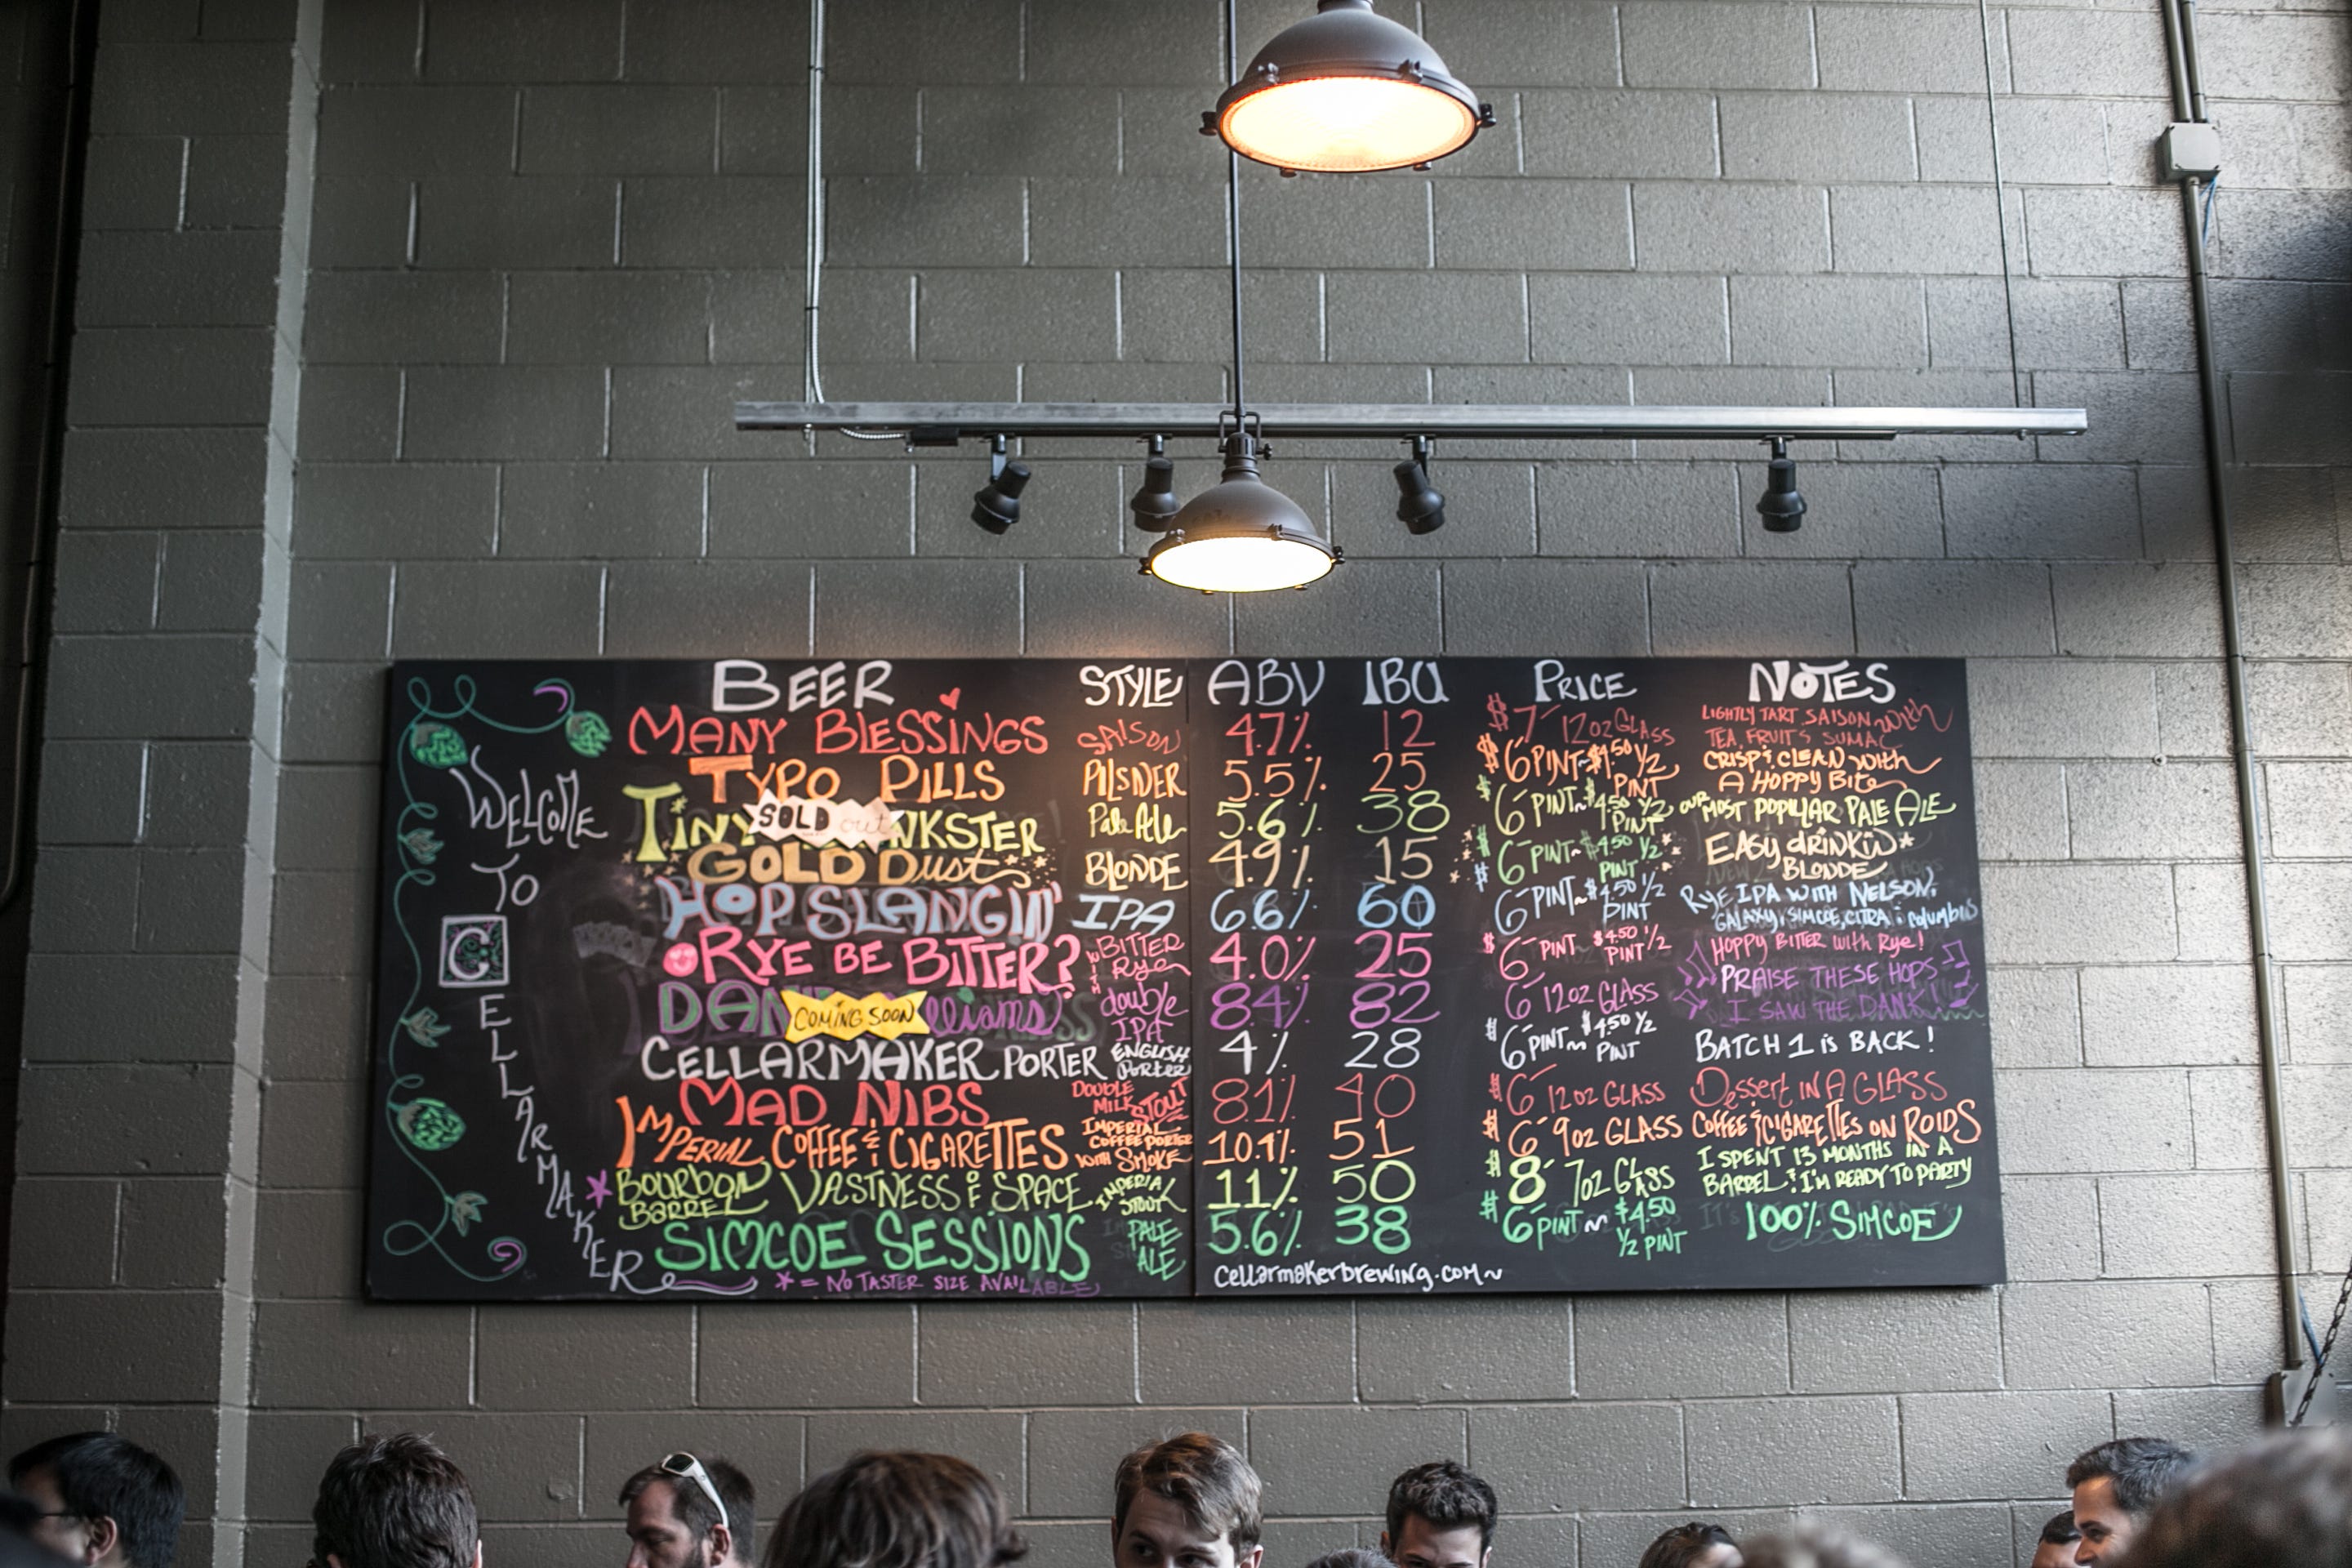 WELCOME TO CELLARMAKER
BEER STYLE ABV IBU PRICE NOTES
MANY BLESSINGS SAISON 4.7% 12 $7 12oz GLASS LIGHTLY TART SAISON with TEA FRUITS SUMAC
TYPO PILLS PILSNER 5.5% 25 $6 PINT ~ $4.50 1/2 PINT CRISP & CLEAN with A HOPPY BITE
TINY SOLD out NKSTER Pale Ale 5.6% 38 $6 PINT ~ $4.50 1/2 PINT OUR MOST POPULAR PALE ALE
GOLD Dust BLONDE 4.9% 15 $6 PINT ~ $4.50 1/2 PINT EASY drinkin BLONDE
HOP SLANGIN' IPA 6.6% 60 6 PINT ~ $4.50 1/2 PINT RYE IPA WITH NELSON, GALAXY, SIMCOE, CITRA & Columbus
RYE BE BITTER? BITTER WITH Rye 4.0% 25 $6 PINT $4.50 1/2 PINT HOPPY BITTER with Rye!
DAN COMING SOON lliams double IPA 8.4% 82 6 12oz GLASS PRAISE THESE HOPS I SAW THE DANK!
CELLARMAKER PORTER ENGLISH Porter 4% 28 $6 PINT ~ $4.50 1/2 PINT BATCH 1 is BACK!
MAD NIBS DOUBLE MILK STOUT 8.1% 40 $6 12oz GLASS Dessert IN A GLASS
IMPERIAL COFFEE & CIGARETTES IMPERIAL COFFEE PORTER WITH SMOKE 10.4% 51 $6 9oz GLASS COFFEE & CIGARETTES ON ROIDS
* BOURBON BARREL VASTNESS & SPACE IMPERIAL STOUT 11% 50 $8 7oz GLASS I SPENT 13 MONTHS IN A BARREL & I'M READY TO PARTY
SIMCOE SESSIONS PALE ALE 5.6% 38 $6 PINT ~ $4.50 1/2 PINT 100% SIMCOE
* = NO TASTER SIZE AVAILABLE
cellarmakerbrewing.com~